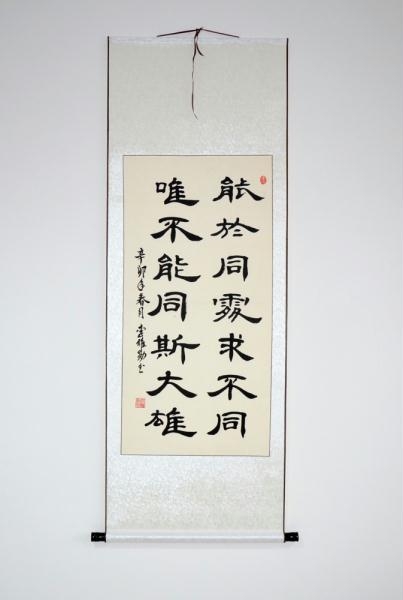 能於同處求不同
唯不能同斯大雄
辛卯年春月